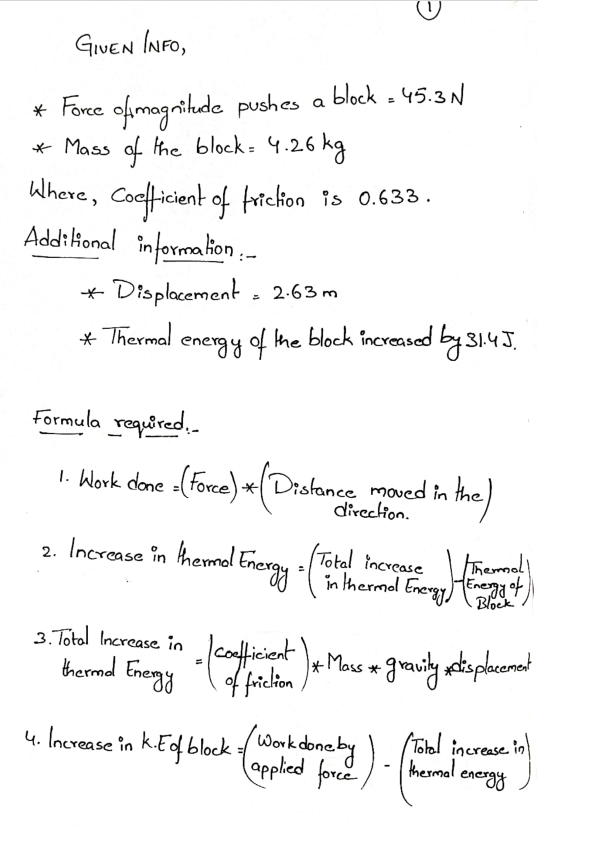 1
GIVEN INFO,
* Force of magnitude pushes a block = 45.3 N
* Mass of the block = 4.26 kg
Where, Coefficient of friction is 0.633.
Additional information :-
* Displacement = 2.63 m
* Thermal energy of the block increased by 31.4 J.
Formula required :-
1. Work done = (Force) * (Distance moved in the direction.)
2. Increase in thermal Energy = (Total increase in thermal Energy) - (Thermal Energy of Block)
3. Total Increase in thermal Energy = (coefficient of friction) * Mass * gravity * displacement
4. Increase in K.E of block = (Work done by applied force) - (Total increase in thermal energy)